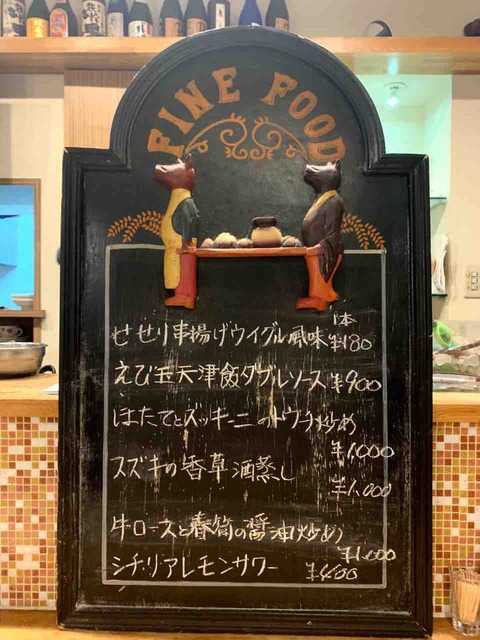 FINE FOOD
せせり串揚げウイグル風味 1本 ¥180
えび玉天津飯ダブルソース ¥900
ほたてとズッキーニのトウチ炒め
¥1,000
スズキの香草酒蒸し
¥1,000
牛ロースと春筍の醤油炒め
¥1,000
シチリアレモンサワー